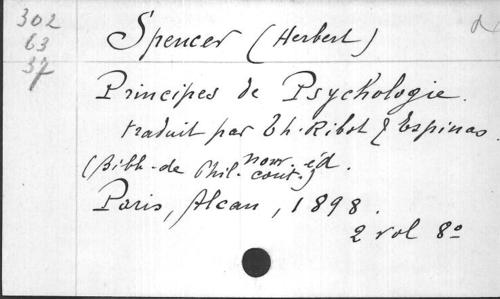 302
63
37
Spencer (Herbert)
Principes de Psychologie.
traduit par Th. Ribot & Espinas.
nouv. éd.
(Bibl. de Phil. cont.)
Paris, Alcan, 1898.
2 vol 8°